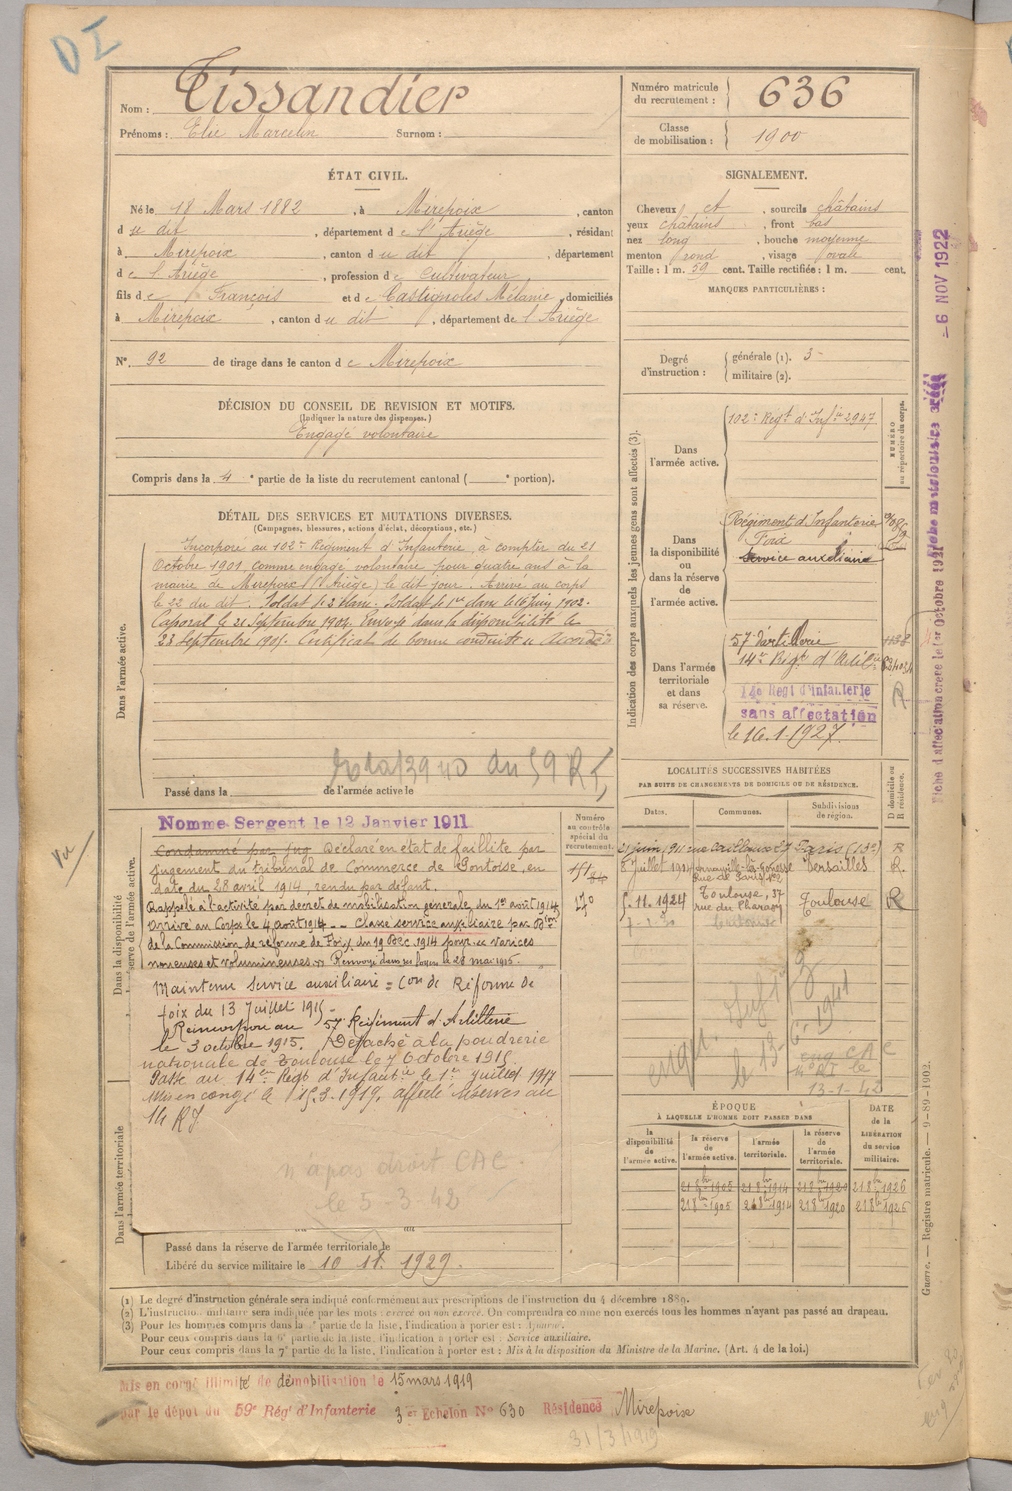 DI
Nom : Tissandier
Prénoms : Elie Marcelin Surnom :
Numéro matricule du recrutement : 636
Classe de mobilisation : 1900
ÉTAT CIVIL.
Né le 18 Mars 1882, à Mirepoix, canton
du dit, département de l'Ariège, résidant
à Mirepoix, canton du dit, département
de l'Ariège, profession de Cultivateur,
fils de François et de Castignoles Mélanie, domiciliés
à Mirepoix, canton du dit, département de l'Ariège
N° 92 de tirage dans le canton de Mirepoix
SIGNALEMENT.
Cheveux ct, sourcils châtains
yeux châtains, front bas
nez long, bouche moyenne
menton rond, visage ovale
Taille : 1 m. 59 cent. Taille rectifiée : 1 m. cent.
MARQUES PARTICULIÈRES :
Degré d'instruction : générale (1). 3
militaire (2).
DÉCISION DU CONSEIL DE REVISION ET MOTIFS.
(Indiquer la nature des dispenses.)
Engagé volontaire
Compris dans la 4e partie de la liste du recrutement cantonal ( e portion).
DÉTAIL DES SERVICES ET MUTATIONS DIVERSES.
(Campagnes, blessures, actions d'éclat, décorations, etc.)
Dans l'armée active.
Incorporé au 102e Régiment d'Infanterie, à compter du 21
Octobre 1901, comme engagé volontaire pour quatre ans à la
mairie de Mirepoix (l'Ariège) le dit jour. Arrivé au corps
le 22 du dit. Soldat de 2e classe. Soldat de 1re classe le 16 juin 1902.
Caporal le 21 Septembre 1902. Envoyé dans la disponibilité le
23 Septembre 1905. Certificat de bonne conduite accordé
Passé dans la de l'armée active le
Indication des corps auxquels les jeunes gens sont affectés (3).
Dans l'armée active.
102e Régt d'Infie 2947
NUMÉRO au répertoire du corps.
Dans la disponibilité ou dans la réserve de l'armée active.
Régiment d'Infanterie
Foix
Service auxiliaire
Dans l'armée territoriale et dans sa réserve.
57e d'artillerie
14e Régt d'Artillie
R
14e Régt d'Infanterie
sans affectation
le 16.1.1927
LOCALITÉS SUCCESSIVES HABITÉES
PAR SUITE DE CHANGEMENTS DE DOMICILE OU DE RÉSIDENCE.
Dates. Communes. Subdivisions de région. D domicile ou R résidence.
21 juin 1911 rue Cailloux 27 Paris (13e) R
8 juillet 1914 Versailles R.
5.11.1924 Toulouse, 37 Toulouse R
Toulouse
13-1-42
Numéro au contrôle spécial du recrutement.
Dans la disponibilité
réserve de l'armée active.
Nommé Sergent le 12 Janvier 1911
Condamné par jug Déclaré en état de faillite par
jugement du tribunal de Commerce de Pontoise, en
date du 28 avril 1914, rendu par défaut.
Rappelé à l'activité par décret de mobilisation générale du 1er août 1914
Arrivé au Corps le 4 août 1914. Classé service auxiliaire par Don
de la Commission de réforme de Foix du 19 Déc. 1914 pour "varices
noueuses et volumineuses". Renvoyé dans ses foyers le 28 mai 1915.
Maintenu service auxiliaire = Con de Réforme de
foix du 13 Juillet 1915
Réincorporé au 57e Régiment d'Artillerie
le 3 octobre 1915. Détaché à la poudrerie
nationale de Toulouse le 7 Octobre 1915.
Passé au 14e Régt d'Infantie le 1er juillet 1917
Mis en congé le 15.3.1919, affecté réserves au
14 RI
n'a pas droit CAC.
le 5-3-42
Dans l'armée territoriale
Passé dans la réserve de l'armée territoriale le
Libéré du service militaire le 10 1929.
ÉPOQUE
À LAQUELLE L'HOMME DOIT PASSER DANS
la disponibilité de l'armée active. la réserve de l'armée active. l'armée territoriale. la réserve de l'armée territoriale. DATE de la LIBÉRATION du service militaire.
21 8bre 1905 21 8bre 1914 21 8bre 1920 21 8bre 1926
21 8bre 1905 21 8bre 1914 21 8bre 1920 21 8bre 1926
(1) Le degré d'instruction générale sera indiqué conformément aux prescriptions de l'instruction du 4 décembre 1889.
(2) L'instruction militaire sera indiquée par les mots : exercé ou non exercé. On comprendra comme non exercés tous les hommes n'ayant pas passé au drapeau.
(3) Pour les hommes compris dans la partie de la liste, l'indication à porter est :
Pour ceux compris dans la 6e partie de la liste, l'indication à porter est : Service auxiliaire.
Pour ceux compris dans la 7e partie de la liste, l'indication à porter est : Mis à la disposition du Ministre de la Marine. (Art. 4 de la loi.)
Mis en congé illimité de démobilisation le 15 mars 1919
par le dépôt du 59e Régt d'Infanterie 3e Echelon N° 630 Résidence Mirepoix
31/3/1919
Vu
6 NOV 1922
Guerre. — Registre matricule. — 9-89-1902.